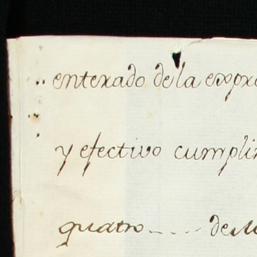 enterado de la expre
y efectivo cumplim
quatro - - - - de M